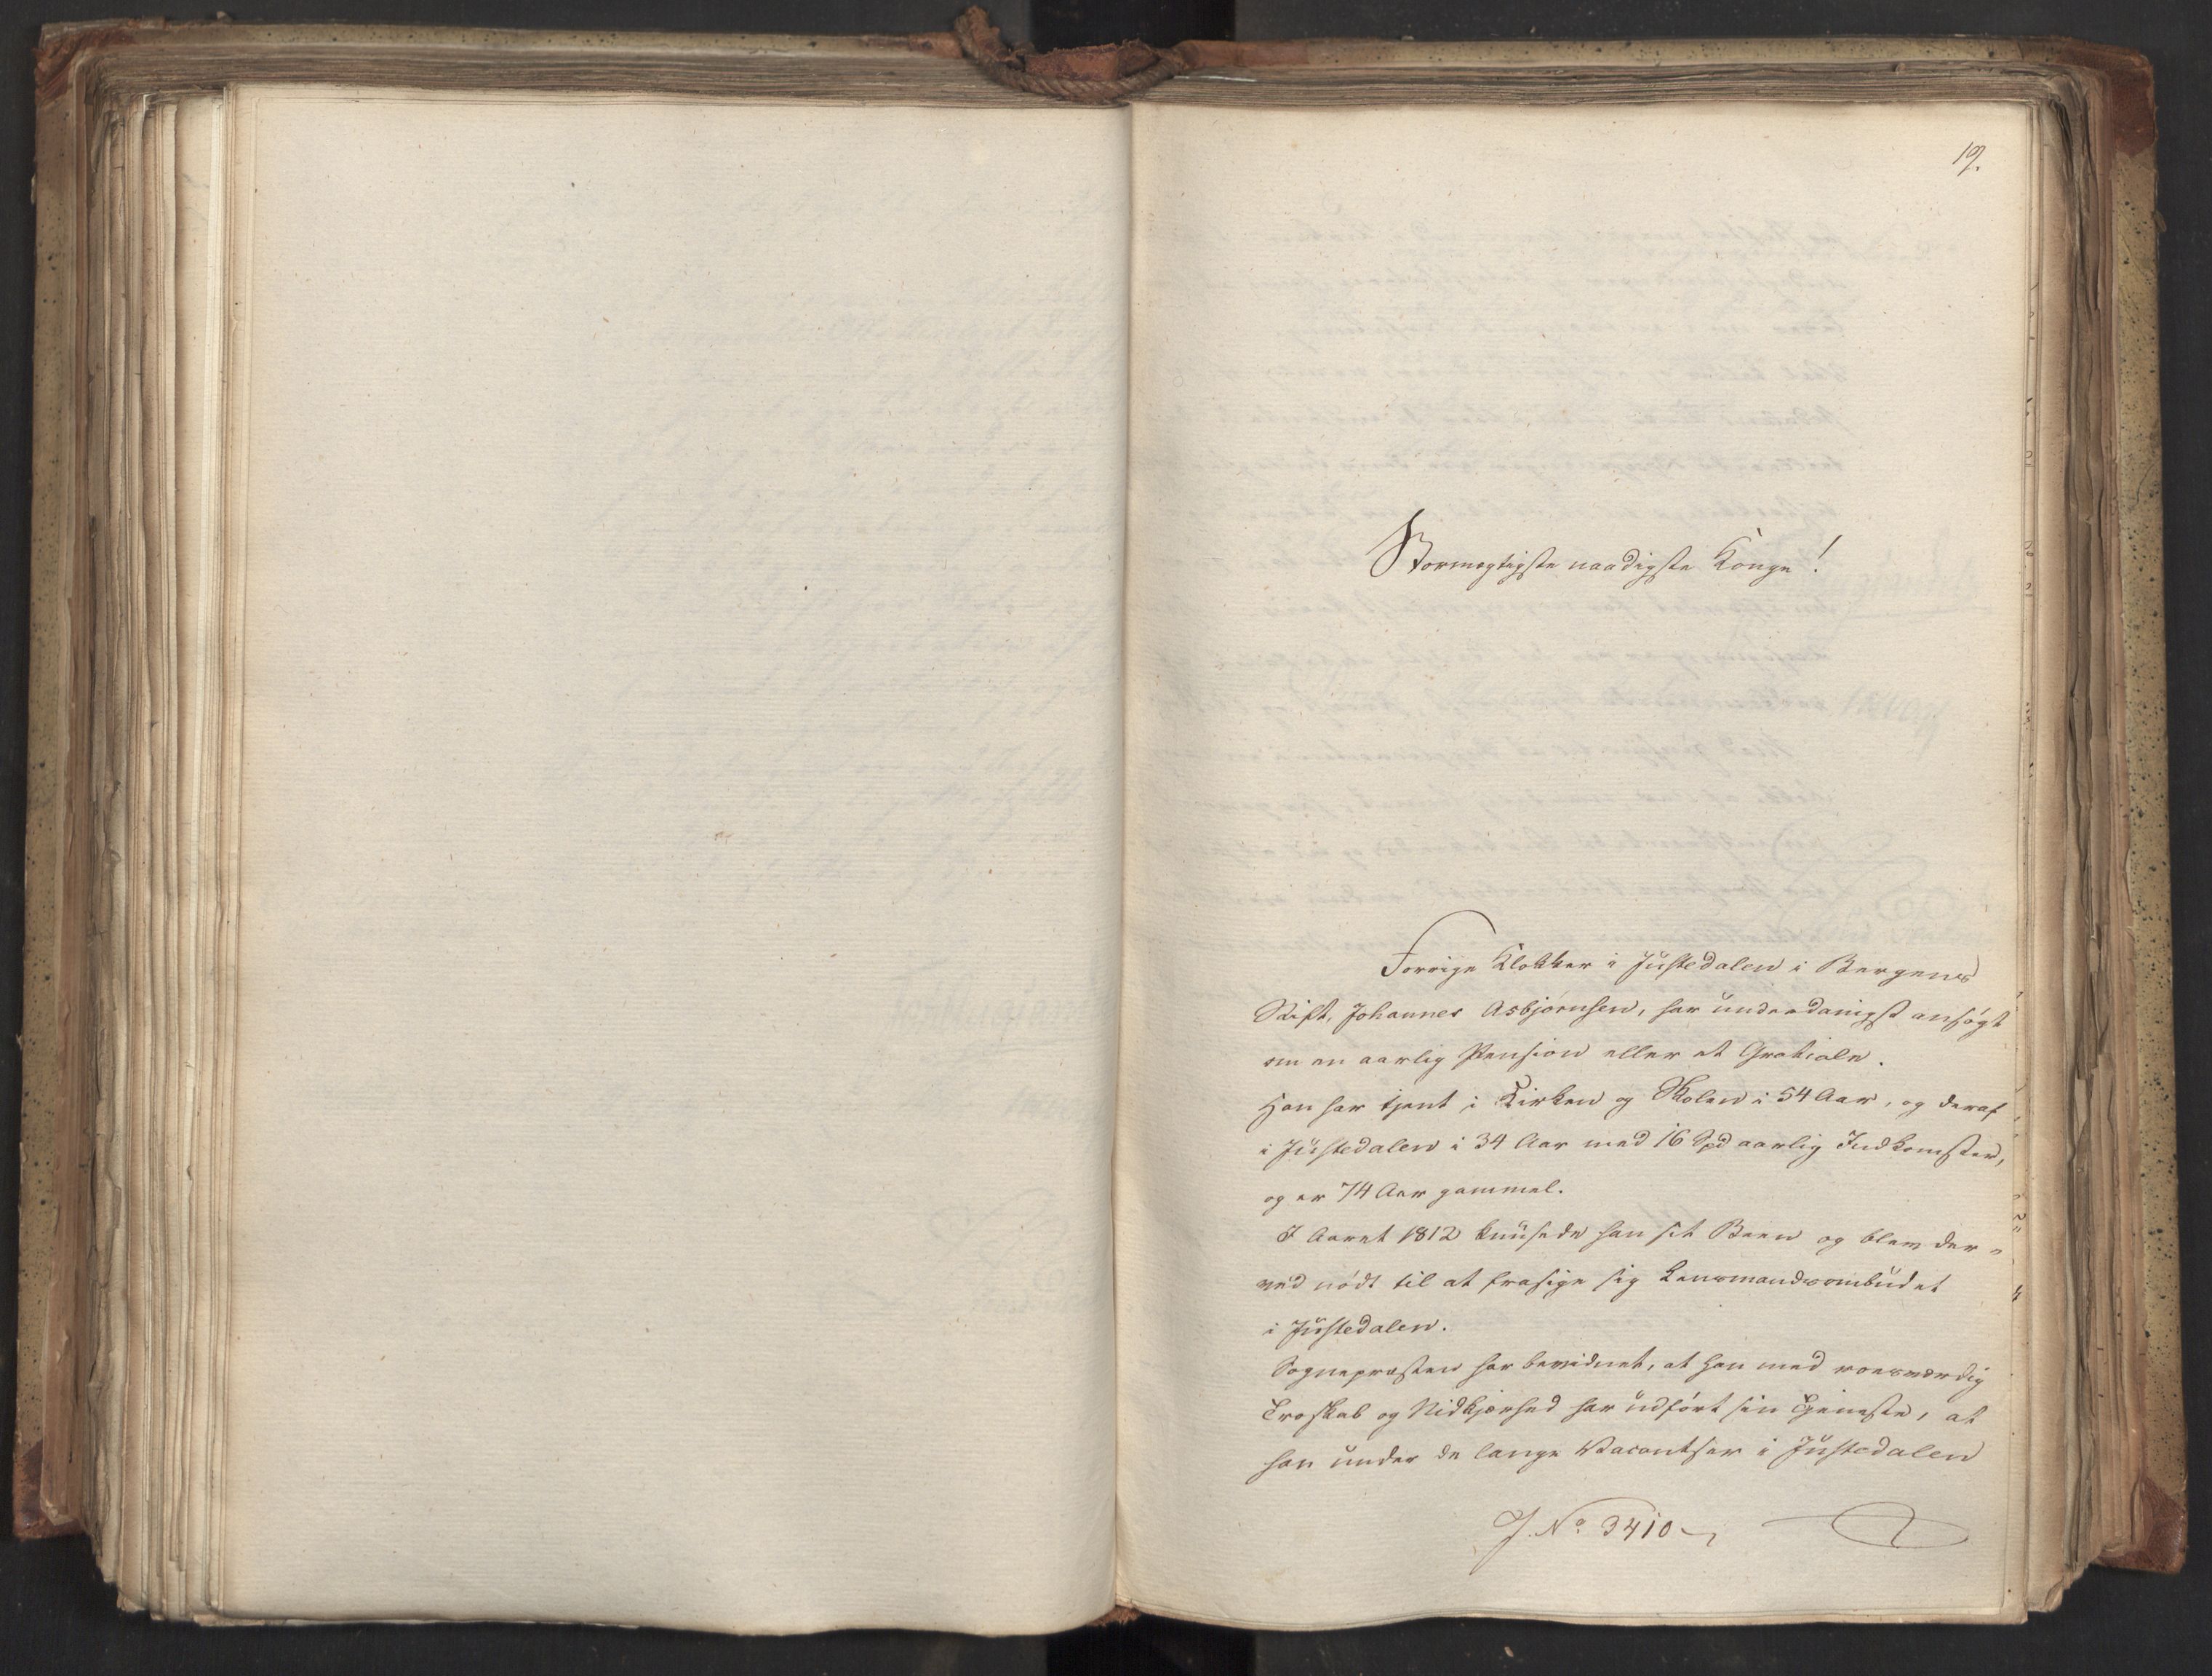 19.
Stormægtigste naadigste Konge!
Forrige Klokker i Justedalen i Bergens
Stift, Johannes Asbjørnsen, har underdanigst ansøgt
om en aarlig Pension eller et Gratiale.
Han har tjent i Kirken og Skolen i 54 Aar, og deraf
i Justedalen i 34 Aar med 16 Spd aarlig Indkomster,
og er 74 Aar gammel.
I Aaret 1812 knusede han sit Been og blev der-
ved nødt til at frasige sig Lensmandsombudet
i Justedalen.
Sognepræsten har bevidnet, at han med roesværdig
Troskab og Nidkjærhed har udført sin Tjeneste, at
han under de lange Vacantser i Justedalen
J. No 3410